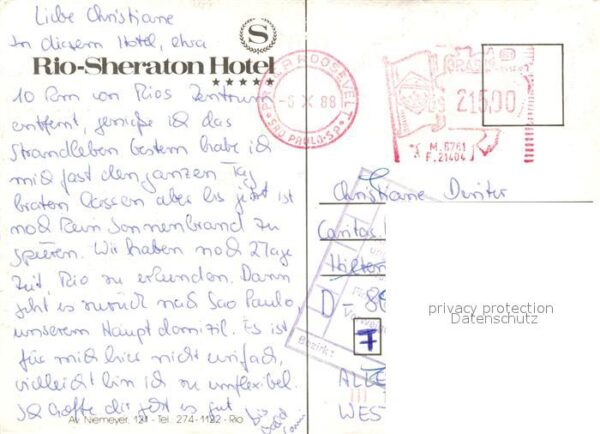 Liebe Christiane
In diesem Hotel, etwa
S
Rio-Sheraton Hotel
★★★★★
10 km von Rios Zentrum
entfernt, genieße ich das
Strandleben. Gestern habe ich
mich fast den ganzen Tag
braten lassen aber bis jetzt ist
noch kein Sonnenbrand zu
spüren. Wir haben noch 2 Tage
Zeit, Rio zu erkunden. Dann
geht es zurück nach Sao Paulo,
unserem Hauptdomizil. Es ist
für mich hier nicht einfach,
vielleicht bin ich zu unflexibel.
Ich hoffe dir geht es gut
bis bald
Av. Niemeyer, 121 - Tel: 274-1122 - Rio
ROOSEVELT
-6 X 88
SÃO PAULO-SP
BRASIL
215,00
M. 6761
F. 21404
Christiane
Caritas
D-
7
Bezirk:
WES
privacy protection
Datenschutz